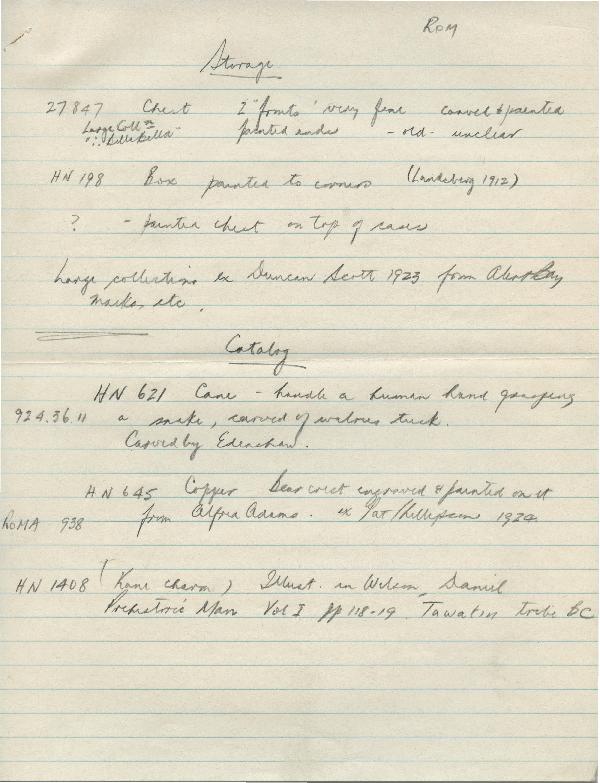 ROM
Storage
27847 Chest 2 "fronts" very fine carved & painted
Large Colln painted ends - old - unclear
∴ Bella Bella
HN 198 Box painted to corners (Landsberg 1912)
? - painted chest on top of cases
Large collections ex Duncan Scott 1923 from Alert Bay
masks, etc.
Catalog
HN 621 Cane - handle a human hand grasping
924.36.11 a snake, carved of walrus tusk.
Carved by Edenshaw.
HN 645 Copper Bear crest engraved & painted on it
ROMA 938 from Alfred Adams. ex 1924
HN 1408 (Kane charm) Illust. in Wilson, Daniel
Prehistoric Man Vol I pp 118-19 Tawatin tribe BC